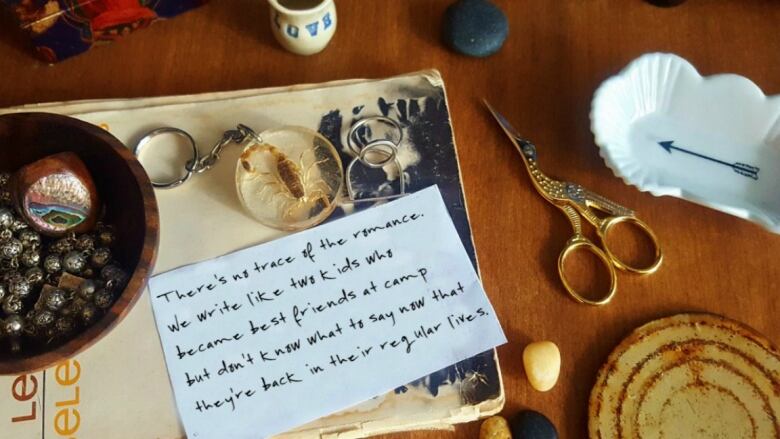 LOVE
There's no trace of the romance.
We write like two kids who
became best friends at camp
but don't know what to say now that
they're back in their regular lives.